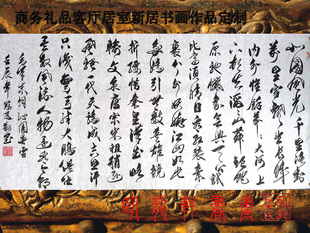 商务礼品客厅居室新居书画作品定制
北国风光千里冰封
万里雪飘望长城
内外惟余莽莽大河上
下顿失滔滔山舞银蛇
原驰蜡象欲与天公试
比高须晴日看红装素裹
分外妖娆江山如此多
娇引无数英雄竞
折腰惜秦皇汉武略
输文采唐宗宋祖稍逊
风骚一代天骄成吉思汗
只识弯弓射大雕俱往
矣数风流人物还看今朝
毛泽东词沁园春雪